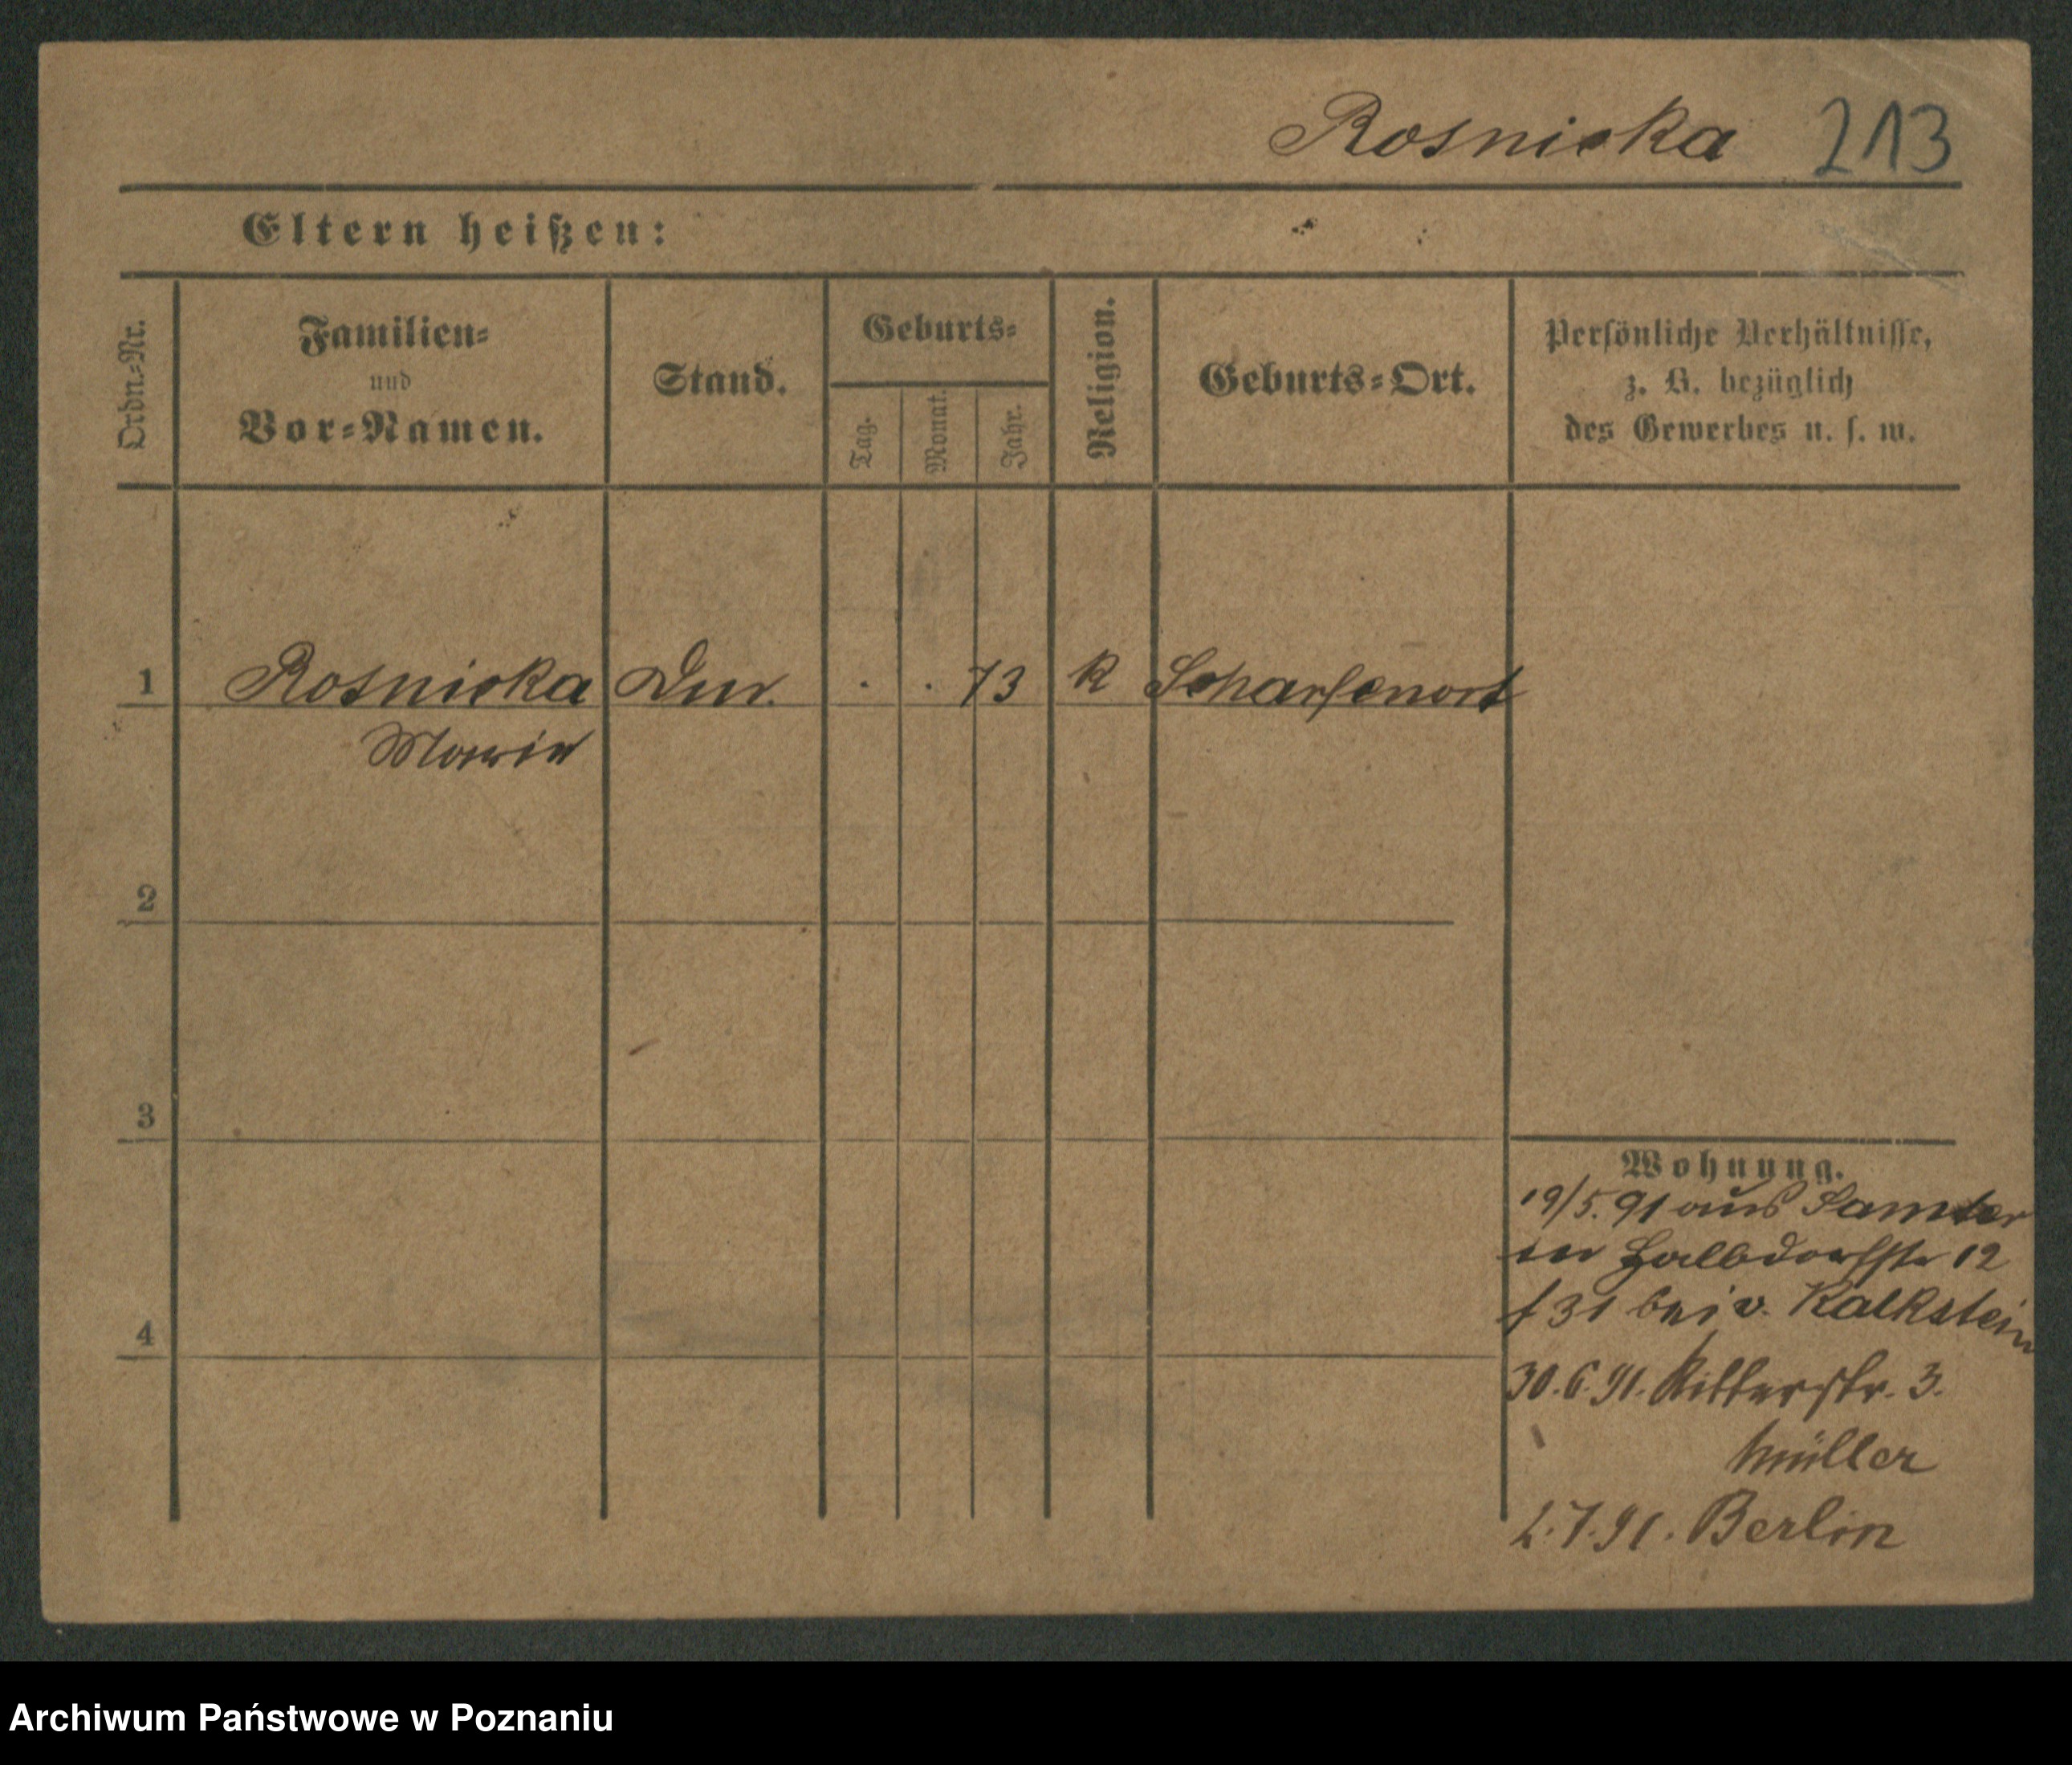 Rosnicka 213
Eltern heißen:
Ordn.-Nr.
Familien-
und
Vor-Namen.
Stand.
Geburts-
Tag.
Monat.
Jahr.
Religion.
Geburts-Ort.
Persönliche Verhältnisse,
z. B. bezüglich
des Gewerbes u. s. w.
1 Rosnicka . . 73 k Scharfenort
Marie
2
3
4
Wohnung.
19/5. 91 aus Samter
Halbdorfstr 12
31 bei v. Kalkstein
30.6.91. Ritterstr. 3.
Müller
2.7.91. Berlin
Archiwum Państwowe w Poznaniu